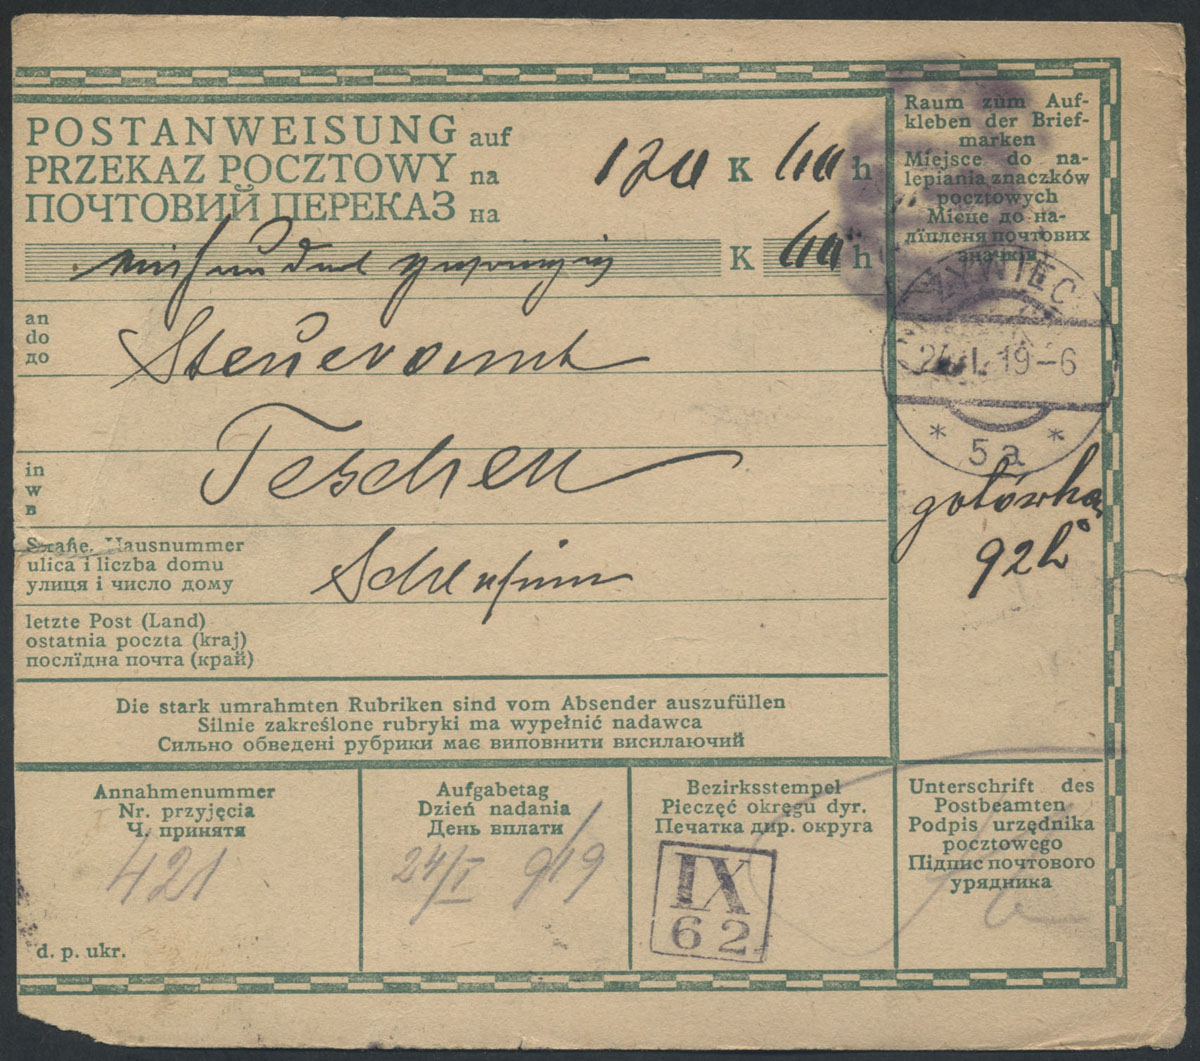 POSTANWEISUNG auf
PRZEKAZ POCZTOWY na
ПОЧТОВИЙ ПЕРЕКАЗ на
120 K 60 h
K 60 h
Raum zum Auf-
kleben der Brief-
marken
Miejsce do na-
lepiania znaczków
pocztowych
Місце до на-
ліпленя почтових
значків
ŻYWIEC
24.I.19-6
* 5a *
an
do
до
Steueramt
in
w
в
Teschen
gotówka
92h
Straße, Hausnummer
ulica i liczba domu
улиця і число дому
Schlesien
letzte Post (Land)
ostatnia poczta (kraj)
послїдна почта (край)
Die stark umrahmten Rubriken sind vom Absender auszufüllen
Silnie zakreślone rubryki ma wypełnić nadawca
Сильно обведені рубрики має виповнити висилаючий
Annahmenummer
Nr. przyjęcia
Ч. принятя
421
d. p. ukr.
Aufgabetag
Dzień nadania
День вплати
24/I 919
Bezirksstempel
Pieczęć okręgu dyr.
Печатка дир. округа
IX
62
Unterschrift des
Postbeamten
Podpis urzędnika
pocztowego
Підпис почтового
урядника